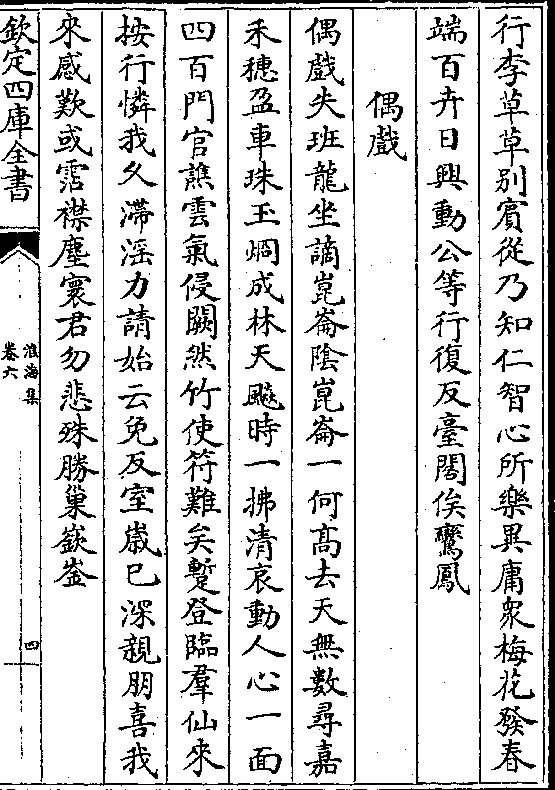 行李草草別賓從乃知仁智心所樂異庸衆梅花發春
端百卉日興動公等行復反臺閣俟鸞鳳
偶戲
偶戲失班龍坐謫崑崙陰崑崙一何高去天無數尋嘉
禾穗盈車珠玉烱成林天飇時一拂清哀動人心一面
四百門官譙雲氣侵闕然竹使符難矣蹔登臨羣仙來
按行憐我久滯滛力請始云免反室嵗已深親朋喜我
來感歎或霑襟塵寰君勿悲殊勝巢嶔崟
欽定四庫全書
淮海集
卷六
四